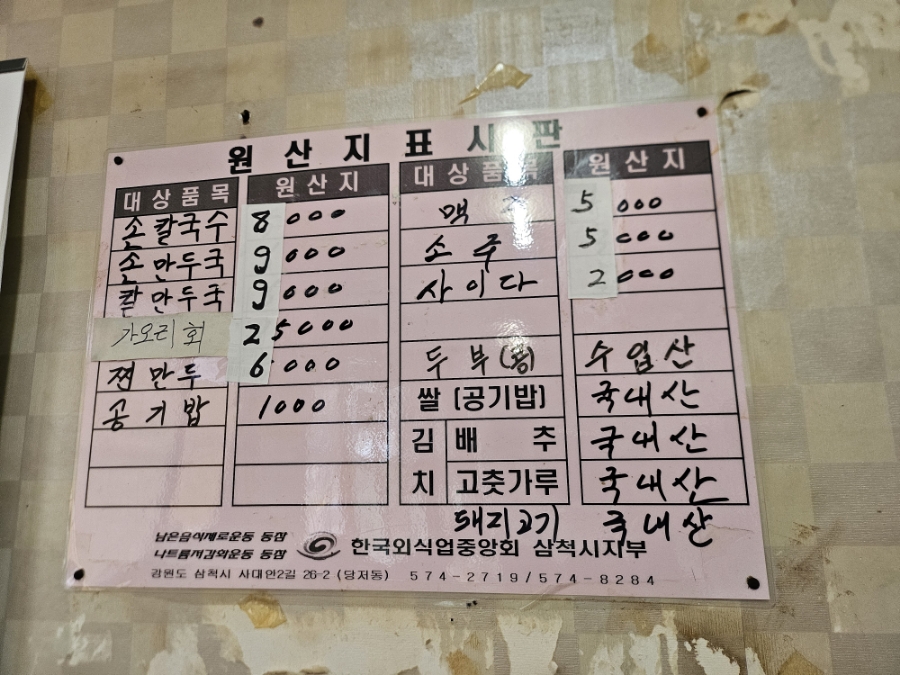 원산지표시판
대상품목 원산지 대상품목 원산지
손칼국수 8000 맥주 5000
손만두국 9000 소주 5000
칼만두국 9000 사이다 2000
가오리회 25000
찐만두 6000 두부(콩) 수입산
공기밥 1000 쌀 (공기밥) 국내산
김치 배추 국내산
고춧가루 국내산
돼지고기 국내산
남은음식제로운동 동참
나트륨저감화운동 동참
한국외식업중앙회 삼척시지부
강원도 삼척시 사대안2길 26-2 (당저동) 574-2719/574-8284